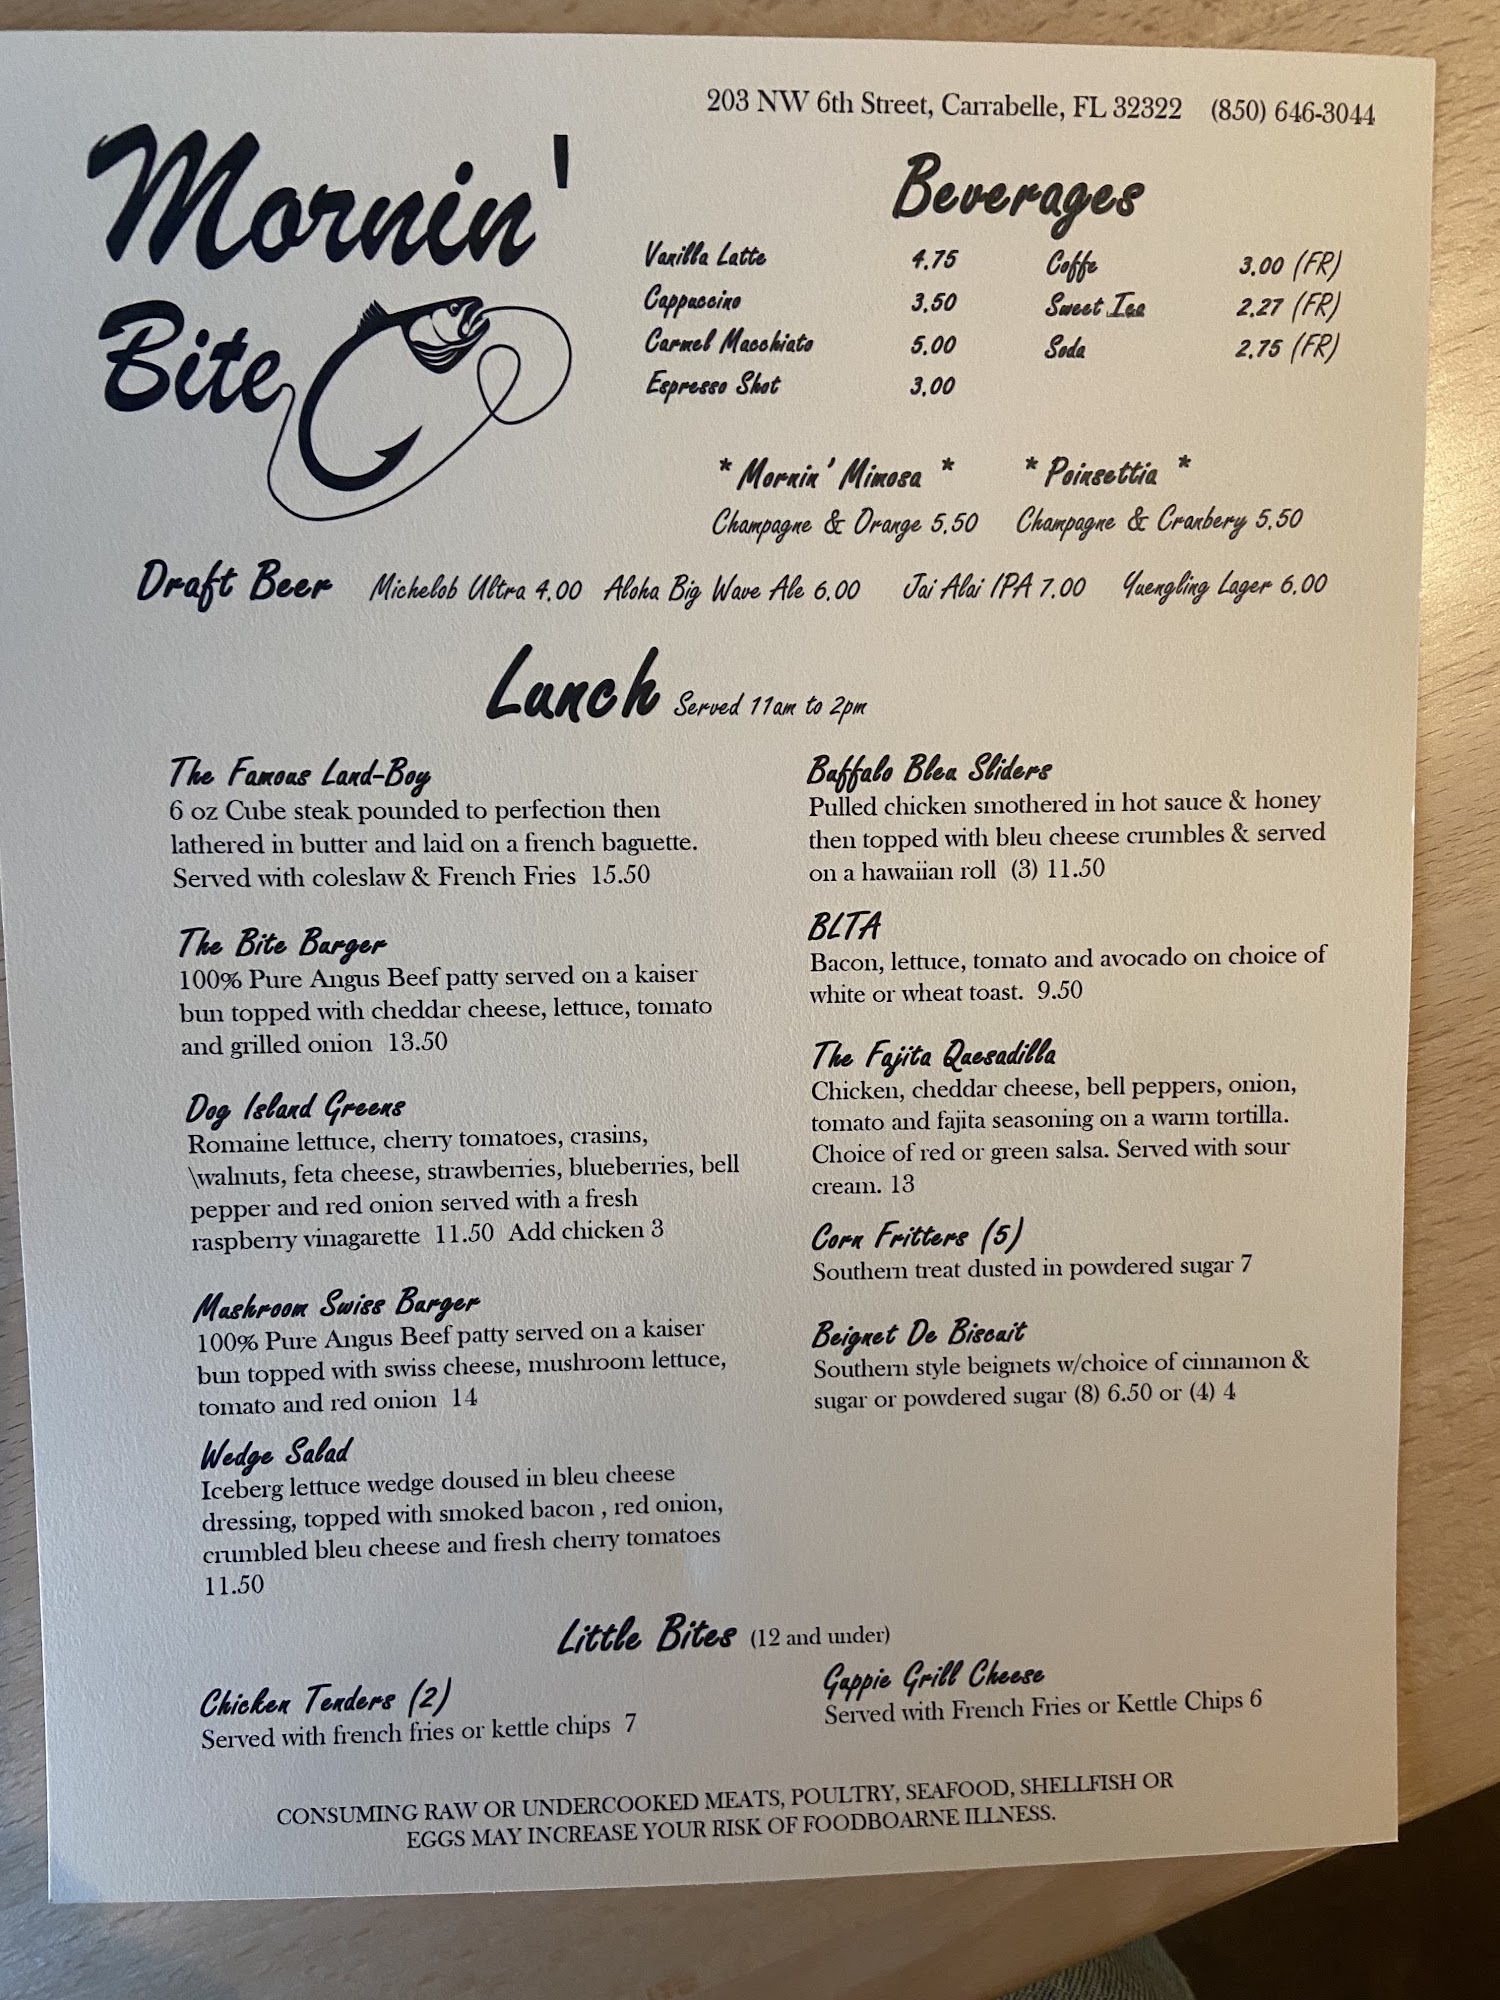 203 NW 6th Street, Carrabelle, FL 32322 (850) 646-3044
Mornin'
Bite
Beverages
Vanilla Latte 4.75
Cappuccino 3.50
Carmel Macchiato 5.00
Espresso Shot 3.00
Coffe 3.00 (FR)
Sweet Tea 2.27 (FR)
Soda 2.75 (FR)
* Mornin' Mimosa *
Champagne & Orange 5.50
* Poinsettia *
Champagne & Cranbery 5.50
Draft Beer Michelob Ultra 4.00 Aloha Big Wave Ale 6.00 Jai Alai IPA 7.00 Yuengling Lager 6.00
Lunch Served 11am to 2pm
The Famous Land-Boy
6 oz Cube steak pounded to perfection then
lathered in butter and laid on a french baguette.
Served with coleslaw & French Fries 15.50
The Bite Burger
100% Pure Angus Beef patty served on a kaiser
bun topped with cheddar cheese, lettuce, tomato
and grilled onion 13.50
Dog Island Greens
Romaine lettuce, cherry tomatoes, crasins,
\walnuts, feta cheese, strawberries, blueberries, bell
pepper and red onion served with a fresh
raspberry vinagarette 11.50 Add chicken 3
Mushroom Swiss Burger
100% Pure Angus Beef patty served on a kaiser
bun topped with swiss cheese, mushroom lettuce,
tomato and red onion 14
Wedge Salad
Iceberg lettuce wedge doused in bleu cheese
dressing, topped with smoked bacon , red onion,
crumbled bleu cheese and fresh cherry tomatoes
11.50
Buffalo Bleu Sliders
Pulled chicken smothered in hot sauce & honey
then topped with bleu cheese crumbles & served
on a hawaiian roll (3) 11.50
BLTA
Bacon, lettuce, tomato and avocado on choice of
white or wheat toast. 9.50
The Fajita Quesadilla
Chicken, cheddar cheese, bell peppers, onion,
tomato and fajita seasoning on a warm tortilla.
Choice of red or green salsa. Served with sour
cream. 13
Corn Fritters (5)
Southern treat dusted in powdered sugar 7
Beignet De Biscuit
Southern style beignets w/choice of cinnamon &
sugar or powdered sugar (8) 6.50 or (4) 4
Little Bites (12 and under)
Chicken Tenders (2)
Served with french fries or kettle chips 7
Guppie Grill Cheese
Served with French Fries or Kettle Chips 6
CONSUMING RAW OR UNDERCOOKED MEATS, POULTRY, SEAFOOD, SHELLFISH OR
EGGS MAY INCREASE YOUR RISK OF FOODBOARNE ILLNESS.